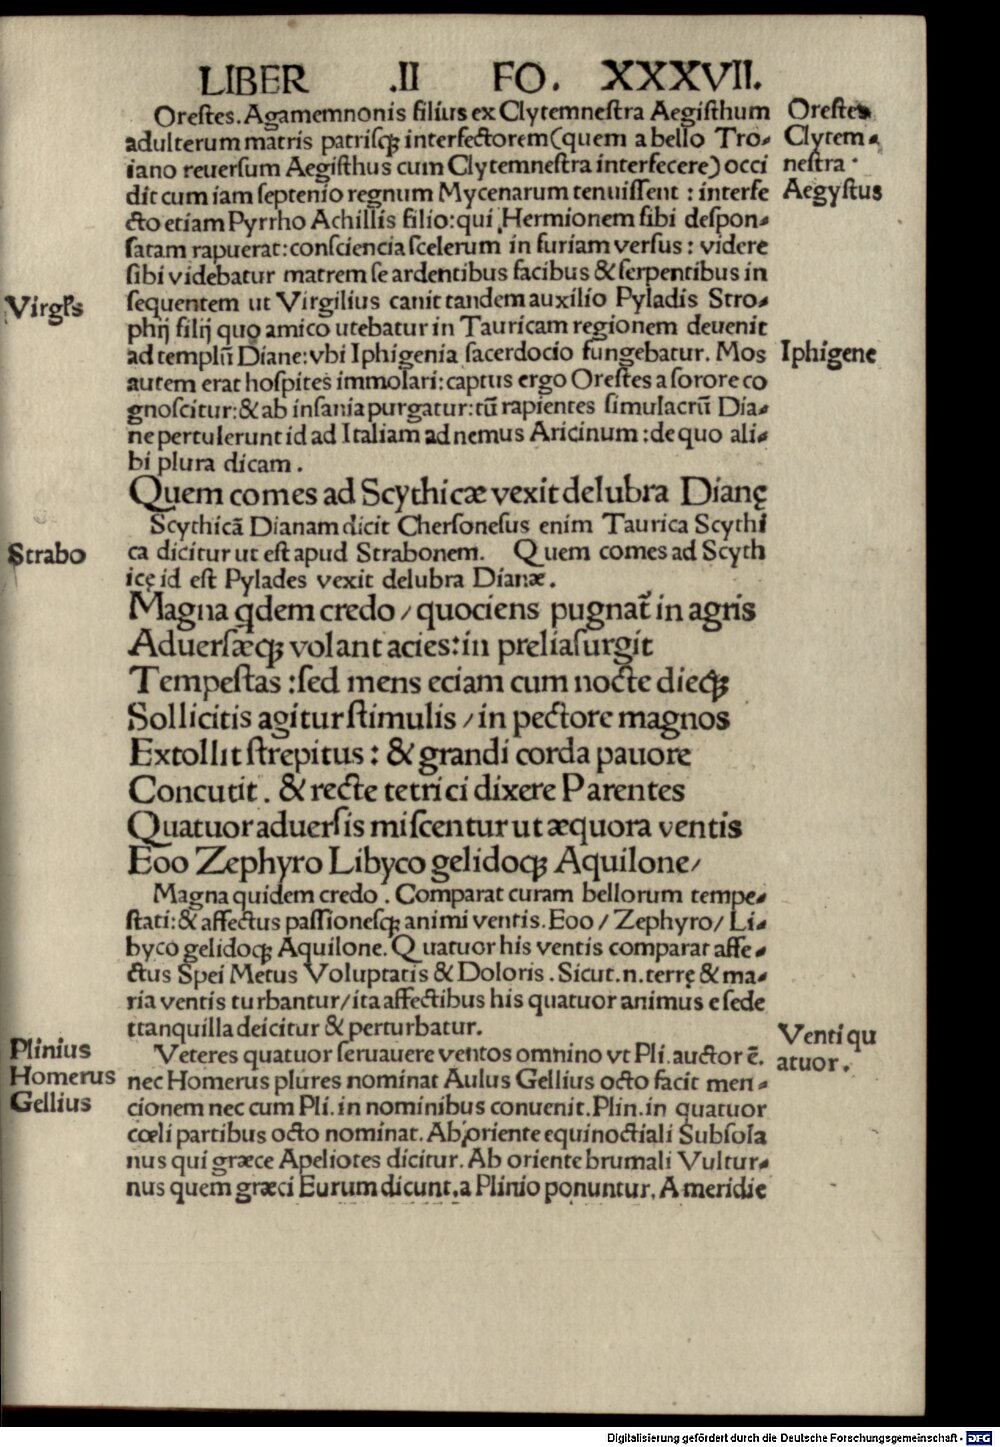 LIBER .II FO. XXXVII.
Oreſtes. Agamemnonis filius ex Clytemneſtra Aegiſthum
adulterum matris patriſqꝫ interfectorem (quem a bello Tro⸗
iano reuerſum Aegiſthus cum Clytemneſtra interfecere) occi
dit cum iam ſeptenio regnum Mycenarum tenuiſſent : interfe
cto etiam Pyrrho Achillis filio: qui Hermionem ſibi deſpon⸗
ſatam rapuerat: conſciencia ſcelerum in furiam verſus : videre
ſibi videbatur matrem ſe ardentibus facibus & ſerpentibus in
ſequentem ut Virgilius canit tandem auxilio Pyladis Stro⸗
phij filij quo amico utebatur in Tauricam regionem deuenit
ad templū Diane: vbi Iphigenia ſacerdocio fungebatur. Mos
autem erat hoſpites immolari: captus ergo Oreſtes a ſorore co
gnoſcitur: & ab inſania purgatur: tū rapientes ſimulacrū Dia⸗
ne pertulerunt id ad Italiam ad nemus Aricinum : de quo ali⸗
bi plura dicam.
Quem comes ad Scythicæ vexit delubra Dianę
Scythicā Dianam dicit Cherſoneſus enim Taurica Scythi
ca dicitur ut eſt apud Strabonem. Quem comes ad Scyth
icę id eſt Pylades vexit delubra Dianæ.
Magna qdem credo / quociens pugnat̄ in agris
Aduerſæqꝫ volant acies: in prelia ſurgit
Tempeſtas : ſed mens eciam cum nocte dieqꝫ
Sollicitis agitur ſtimulis / in pectore magnos
Extollit ſtrepitus : & grandi corda pauore
Concutit. & recte tetrici dixere Parentes
Quatuor aduerſis miſcentur ut æquora ventis
Eoo Zephyro Libyco gelidoqꝫ Aquilone/
Magna quidem credo. Comparat curam bellorum tempe⸗
ſtati: & affectus paſſioneſqꝫ animi ventis. Eoo / Zephyro / Li⸗
byco gelidoqꝫ Aquilone. Quatuor his ventis comparat affe⸗
ctus Spei Metus Voluptatis & Doloris. Sicut .n. terrę & ma⸗
ria ventis turbantur / ita affectibus his quatuor animus e ſede
ttanquilla deicitur & perturbatur.
Veteres quatuor ſeruauere ventos omnino vt Pli. auctor ē.
nec Homerus plures nominat Aulus Gellius octo facit men⸗
cionem nec cum Pli. in nominibus conuenit. Plin. in quatuor
cœli partibus octo nominat. Ab oriente equinoctiali Subſola
nus qui græce Apeliotes dicitur. Ab oriente brumali Vultur⸗
nus quem græci Eurum dicunt. a Plinio ponuntur. A meridie
Oreſtes
Clytem⸗
neſtra
Aegyſtus
Iphigene
Venti qu
atuor.
Strabo
Plinius
Homerus
Gellius
Digitalisierung gefördert durch die Deutsche Forschungsgemeinschaft - DFG